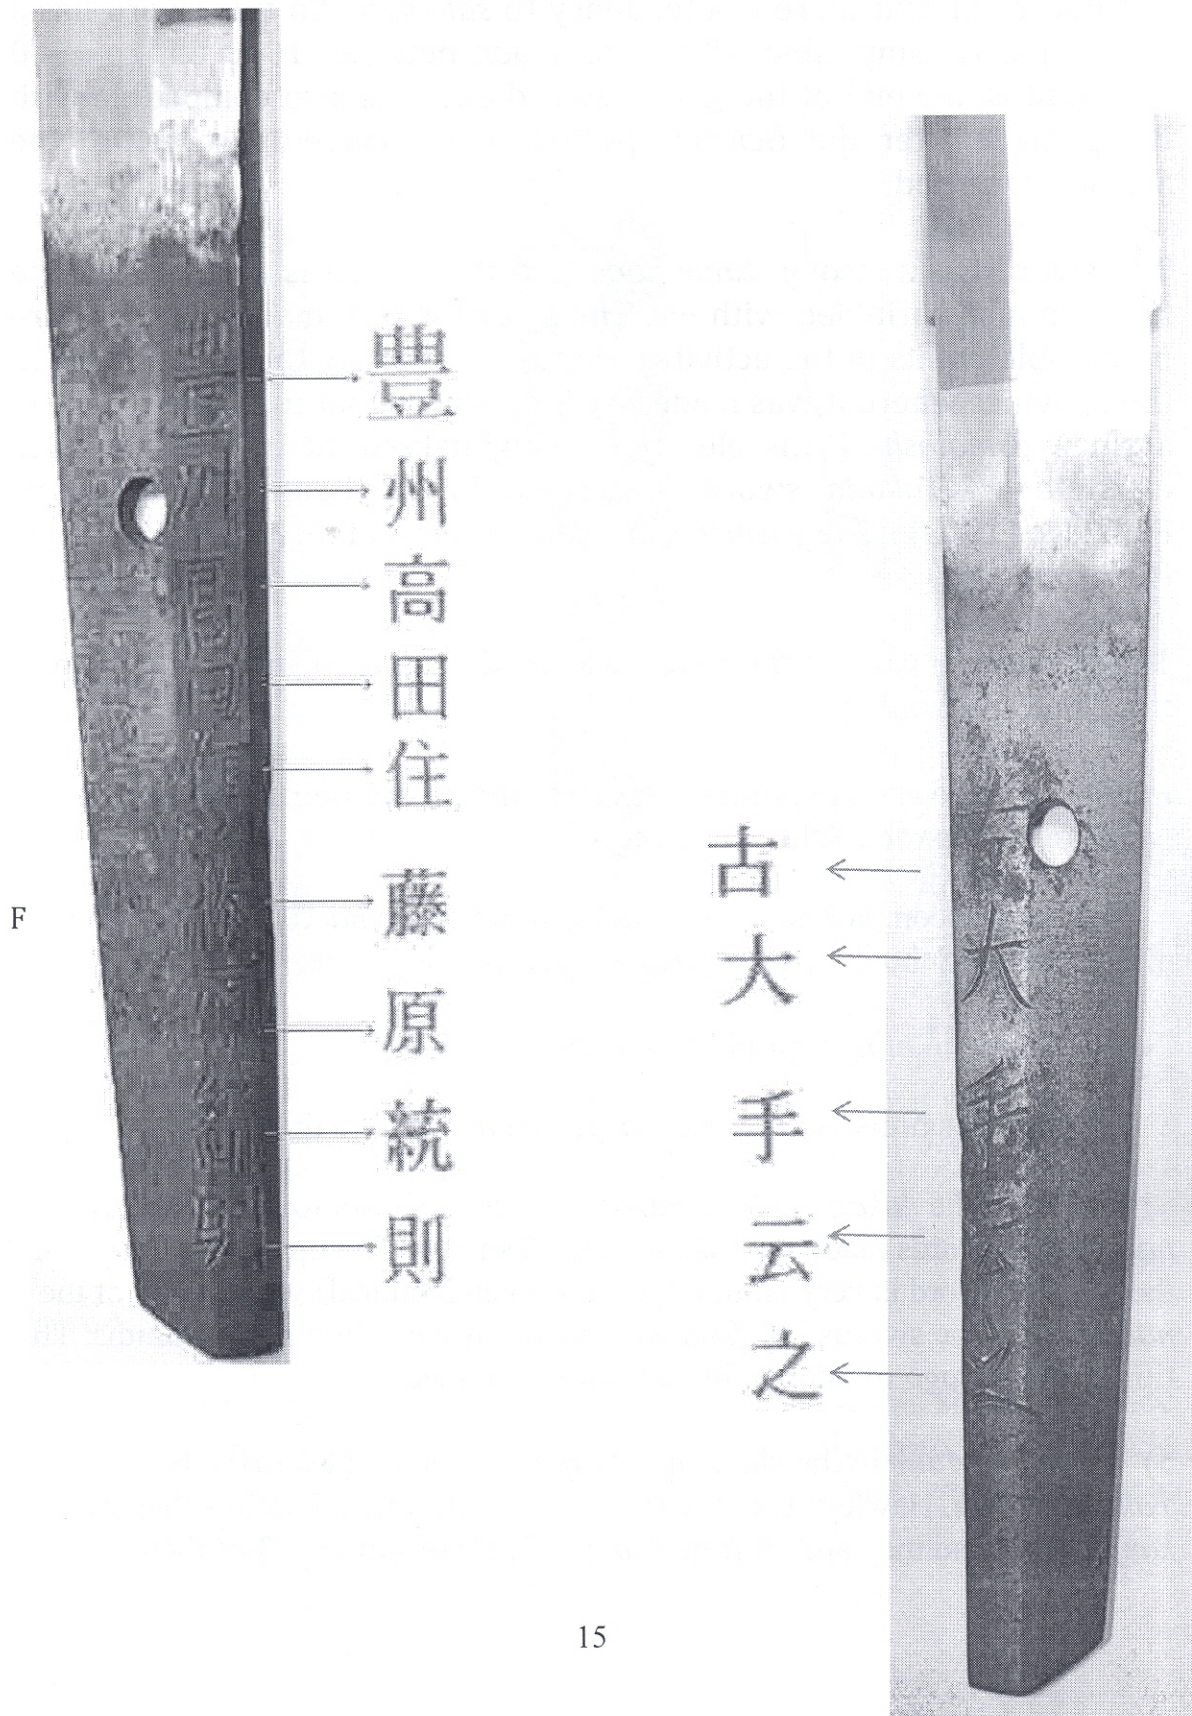 豊州高田住藤原統則
古大手云之
F
15